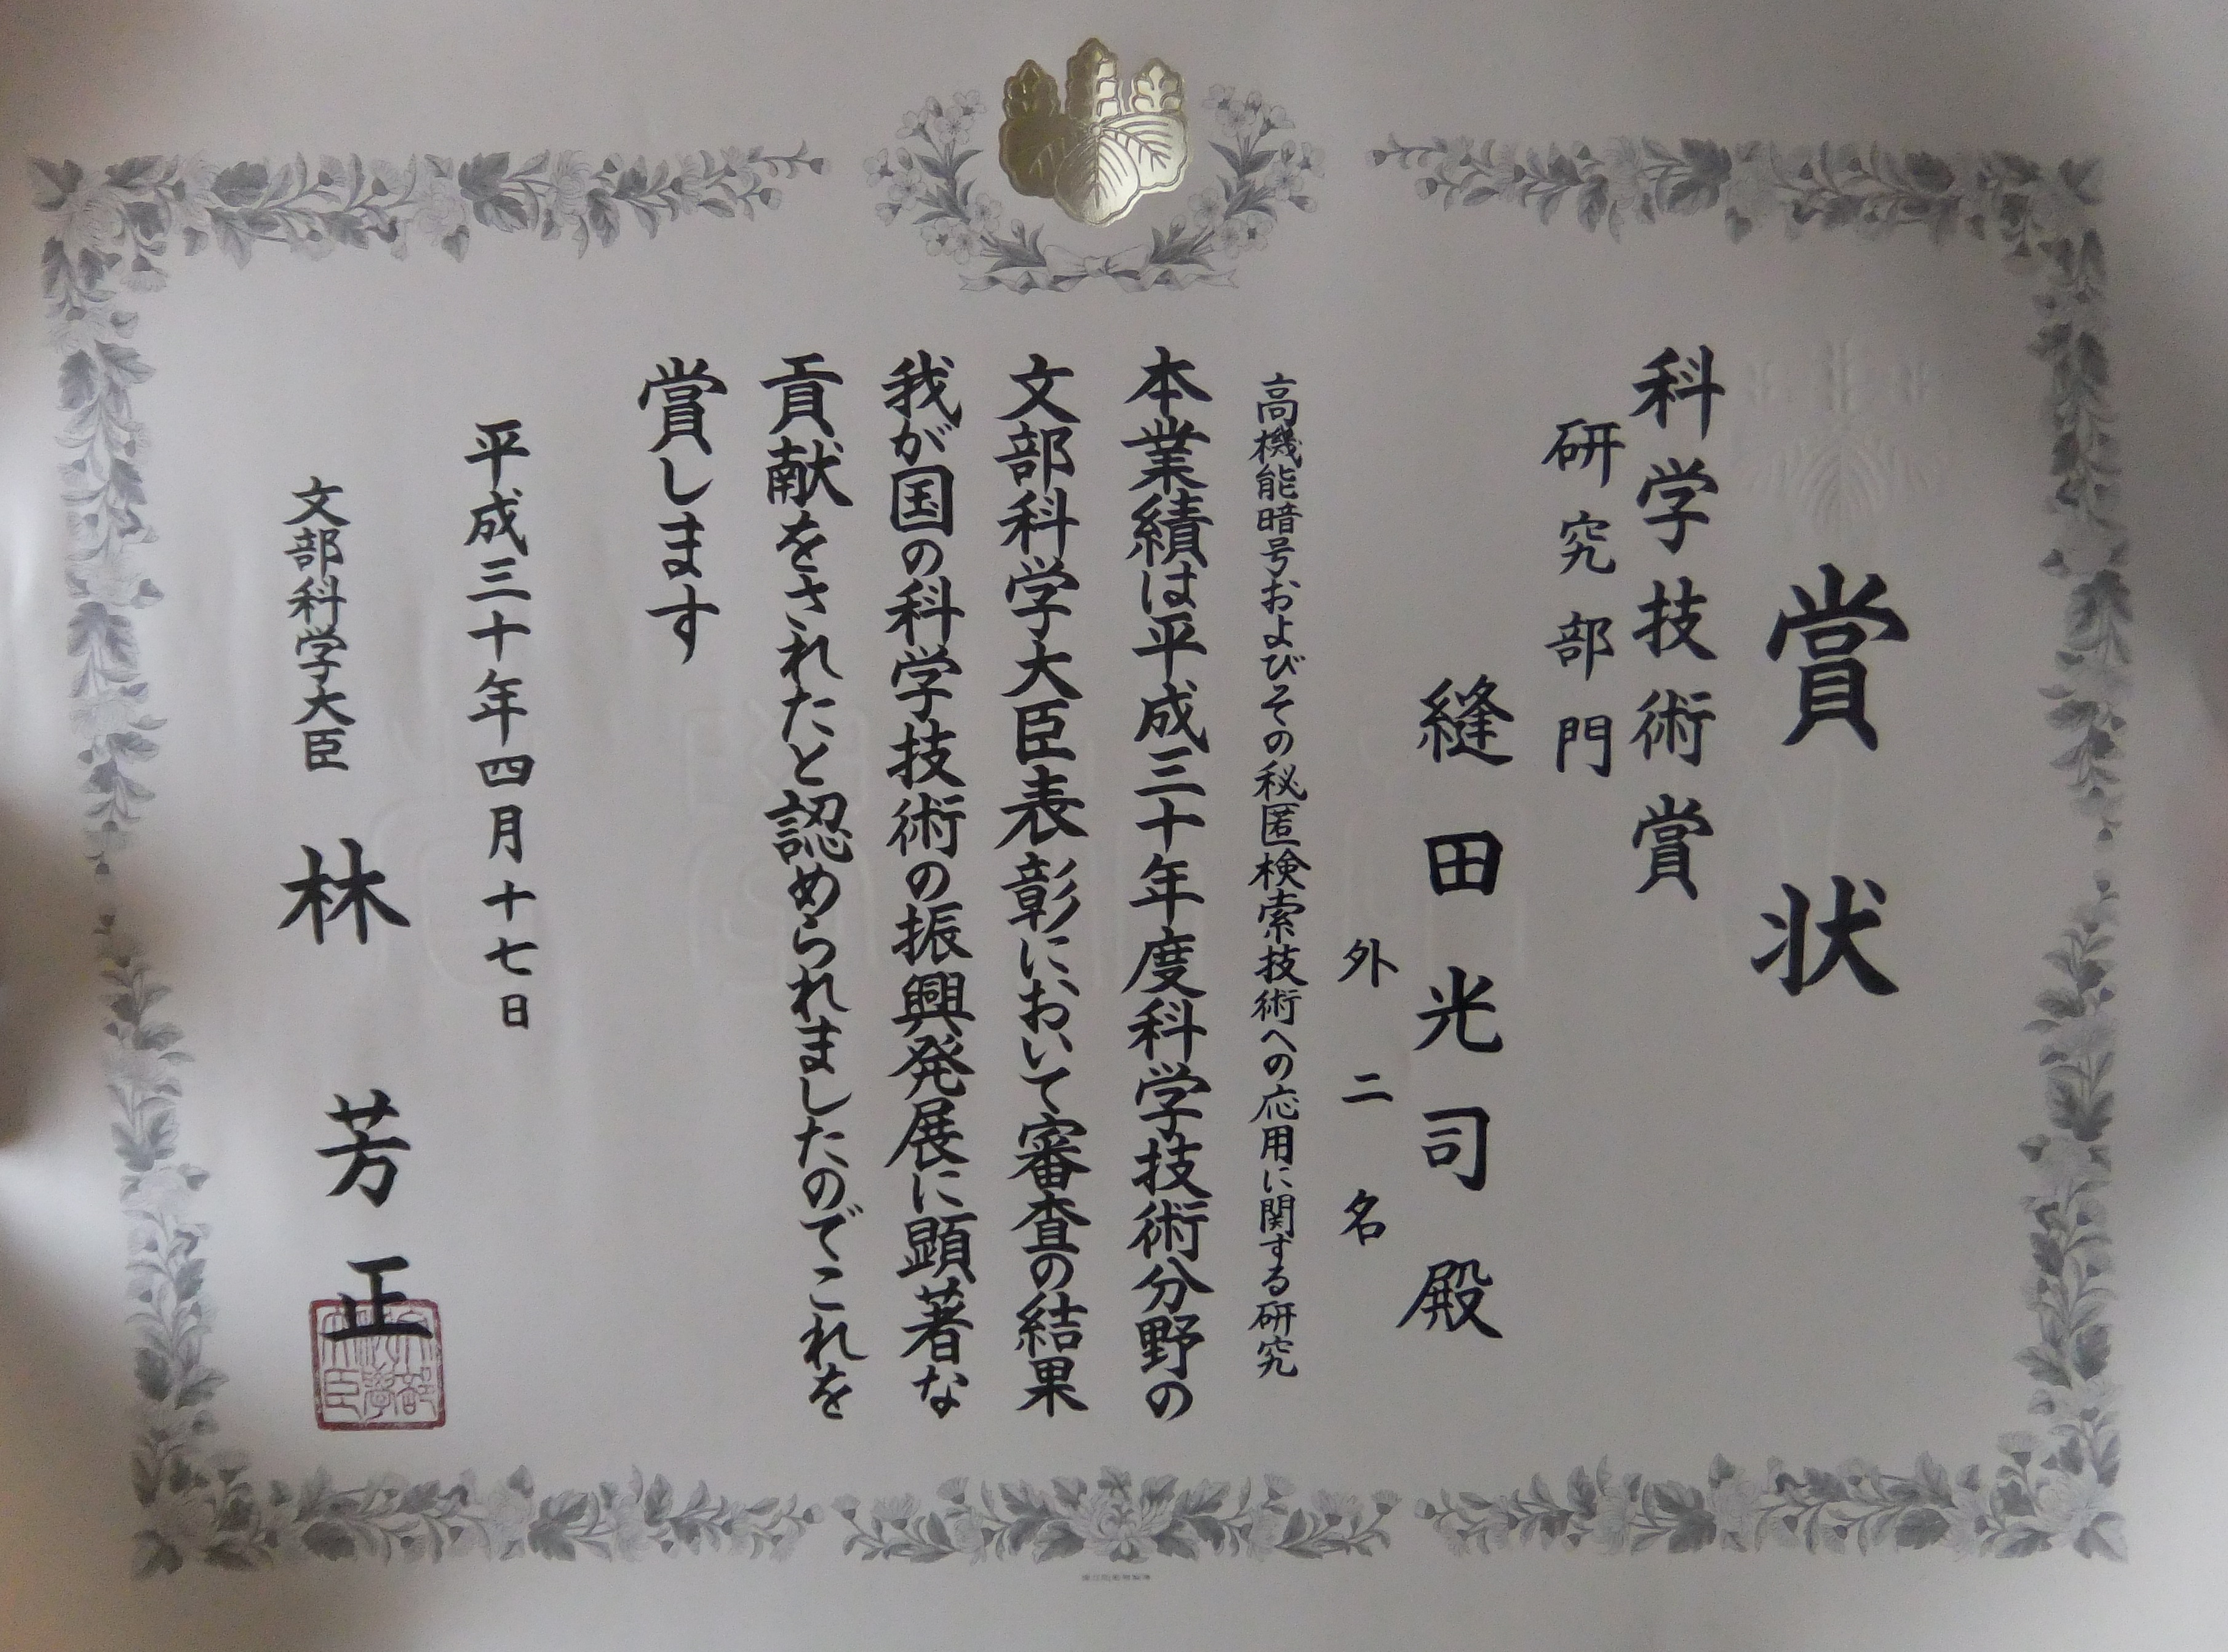 賞状
科学技術賞
研究部門
縫田光司殿
外二名
高機能暗号およびその秘匿検索技術への応用に関する研究
本業績は平成三十年度科学技術分野の
文部科学大臣表彰において審査の結果
我が国の科学技術の振興発展に顕著な
貢献をされたと認められましたのでこれを
賞します
平成三十年四月十七日
文部科学大臣 林芳正